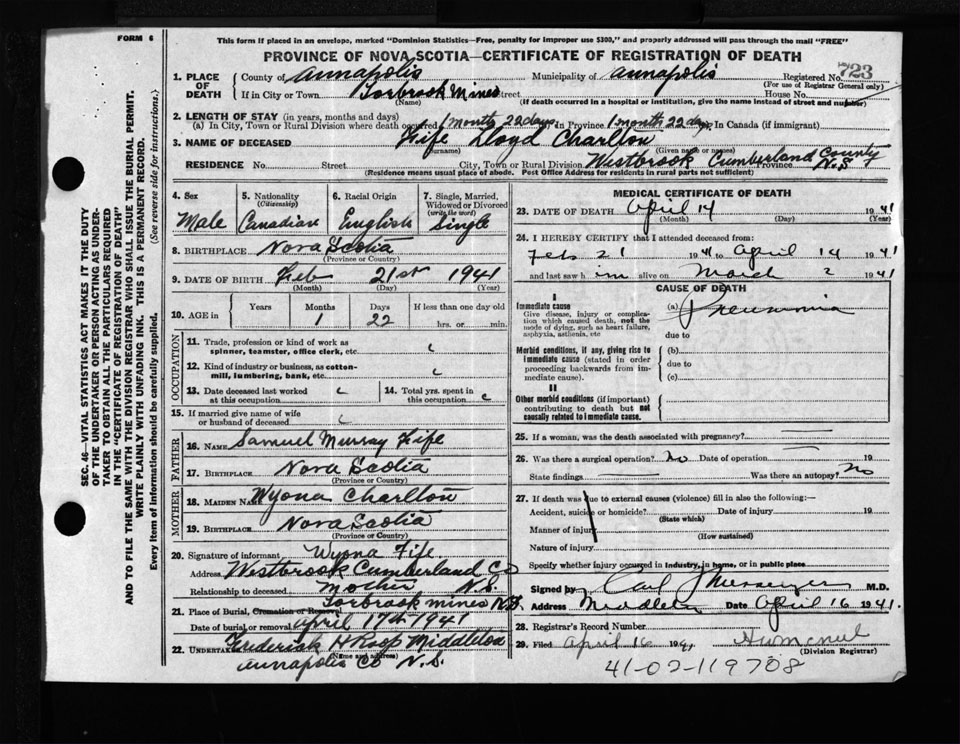 FORM 6
This form if placed in an envelope, marked "Dominion Statistics—Free, penalty for improper use $300," and properly addressed will pass through the mail "FREE"
PROVINCE OF NOVA SCOTIA—CERTIFICATE OF REGISTRATION OF DEATH
1. PLACE OF DEATH
County of Annapolis Municipality of Annapolis Registered No. 723
(For use of Registrar General only)
If in City or Town Torbrook Mines Street House No.
(Name) (If death occurred in a hospital or institution, give the name instead of street and number)
2. LENGTH OF STAY (in years, months and days)
(a) In City, Town or Rural Division where death occurred 1 month 22 days In Province 1 month 22 days In Canada (if immigrant)
3. NAME OF DECEASED Fife Lloyd Charlton
(Surname) (Given name or names)
RESIDENCE No. Street. City, Town or Rural Division Westbrook Cumberland County Province N.S
(Residence means usual place of abode. Post Office Address for residents in rural parts not sufficient)
4. Sex Male
5. Nationality (Citizenship) Canadian
6. Racial Origin English
7. Single, Married, Widowed or Divorced (write the word) Single
8. BIRTHPLACE Nova Scotia
(Province or Country)
9. DATE OF BIRTH Feb 21st 1941
(Month) (Day) (Year)
10. AGE in Years Months 1 Days 22 If less than one day old hrs. or min.
OCCUPATION
11. Trade, profession or kind of work as spinner, teamster, office clerk, etc.
12. Kind of industry or business, as cotton-mill, lumbering, bank, etc.
13. Date deceased last worked at this occupation
14. Total yrs. spent in this occupation
15. If married give name of wife or husband of deceased
FATHER
16. NAME Samuel Murray Fife
17. BIRTHPLACE Nova Scotia
(Province or Country)
MOTHER
18. MAIDEN NAME Wyona Charlton
19. BIRTHPLACE Nova Scotia
(Province or Country)
20. Signature of informant Wyona Fife
Address Westbrook Cumberland Co
Relationship to deceased Mother N.S.
21. Place of Burial, Cremation or Removal Torbrook mines N.S.
Date of burial or removal April 17th 1941
22. UNDERTAKER Frederick H Roop Middleton
(Name and address)
Annapolis Co N.S.
MEDICAL CERTIFICATE OF DEATH
23. DATE OF DEATH April 14 1941
(Month) (Day) (Year)
24. I HEREBY CERTIFY that I attended deceased from:
Feb 21 1941 to April 14 1941
and last saw him alive on March 2 1941
CAUSE OF DEATH
I
Immediate cause
Give disease, injury or complication which caused death, not the mode of dying, such as heart failure, asphyxia, asthenia, etc
(a) Pneumonia
due to
Morbid conditions, if any, giving rise to immediate cause (stated in order proceeding backwards from immediate cause).
(b)
due to
(c)
II
Other morbid conditions (if important) contributing to death but not causally related to immediate cause.
25. If a woman, was the death associated with pregnancy?
26. Was there a surgical operation? No Date of operation 19
State findings Was there an autopsy? No
27. If death was due to external causes (violence) fill in also the following:—
Accident, suicide or homicide? Date of injury 19
(State which)
Manner of injury
(How sustained)
Nature of injury
Specify whether injury occurred in industry, in home, or in public place
Signed by Carl Messenger M.D.
Address Middleton Date April 16 1941.
28. Registrar's Record Number
29. Filed April 16 1941
(Division Registrar)
41-02-119708
SEC. 46—VITAL STATISTICS ACT MAKES IT THE DUTY
OF THE UNDERTAKER OR PERSON ACTING AS UNDER-
TAKER TO OBTAIN ALL THE PARTICULARS REQUIRED
IN THE "CERTIFICATE OF REGISTRATION OF DEATH"
AND TO FILE THE SAME WITH THE DIVISION REGISTRAR WHO SHALL ISSUE THE BURIAL PERMIT.
WRITE PLAINLY WITH UNFADING INK. THIS IS A PERMANENT RECORD.
Every item of information should be carefully supplied. (See reverse side for instructions.)